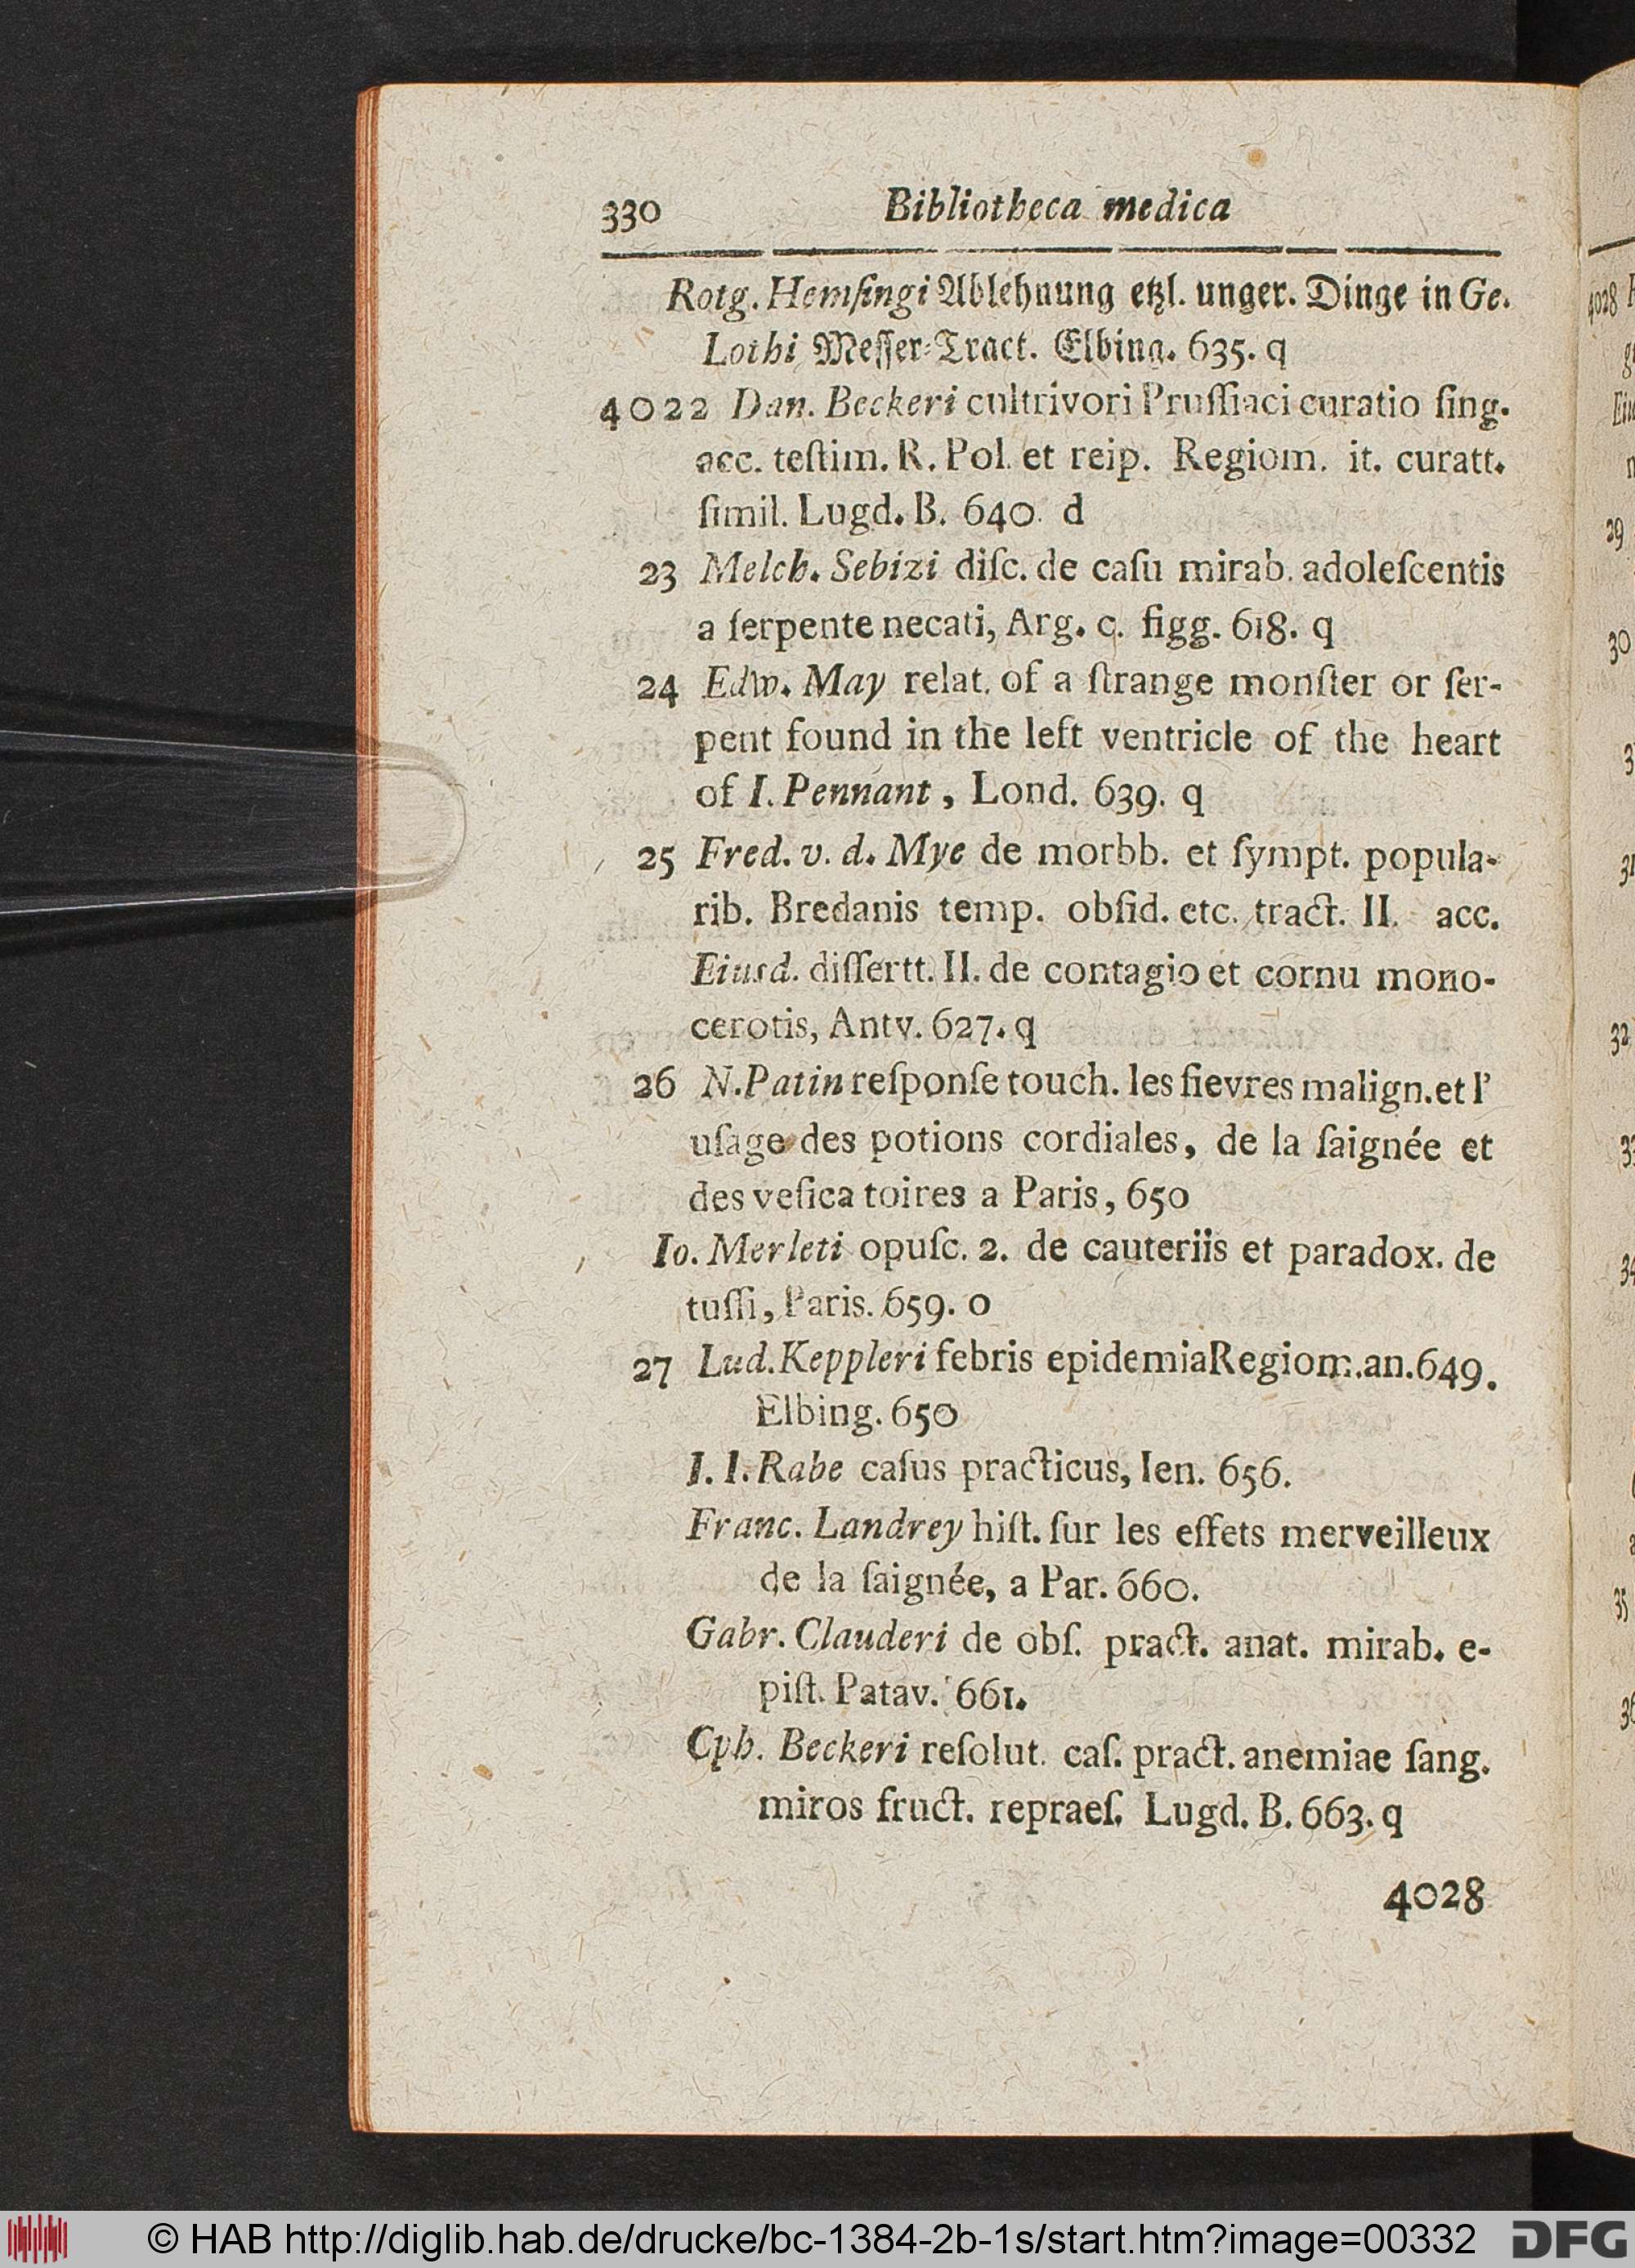 330 Bibliotheca medica
Rotg. Hemſingi Ablehnung etzl. unger. Dinge in Ge.
Lothi Meſſer-Tract. Elbing. 635. q
4022 Dan. Beckeri cultrivori Pruſſiaci curatio ſing.
acc. teſtim. R. Pol. et reip. Regiom. it. curatt.
ſimil. Lugd. B. 640. d
23 Melch. Sebizi diſc. de caſu mirab. adoleſcentis
a ſerpente necati, Arg. c. figg. 618. q
24 Edw. May relat. of a ſtrange monſter or ſer-
pent found in the left ventricle of the heart
of I. Pennant, Lond. 639. q
25 Fred. v. d. Mye de morbb. et ſympt. popula-
rib. Bredanis temp. obſid. etc. tract. II. acc.
Eiusd. diſſertt. II. de contagio et cornu mono-
cerotis, Antv. 627. q
26 N. Patin reſponſe touch. les fievres malign. et l'
uſage des potions cordiales, de la ſaignée et
des veſica toires a Paris, 650
Io. Merleti opuſc. 2. de cauteriis et paradox. de
tuſſi, Paris. 659. o
27 Lud. Keppleri febris epidemiaRegiom. an. 649.
Elbing. 650
I. I. Rabe caſus practicus, Ien. 656.
Franc. Landrey hiſt. ſur les effets merveilleux
de la ſaignée, a Par. 660.
Gabr. Clauderi de obſ. pract. anat. mirab. e-
piſt. Patav. 661.
Cph. Beckeri reſolut. caſ. pract. anemiae ſang.
miros fruct. repraeſ. Lugd. B. 663. q
4028
4028
29
30
32
35
© HAB http://diglib.hab.de/drucke/bc-1384-2b-1s/start.htm?image=00332 DFG